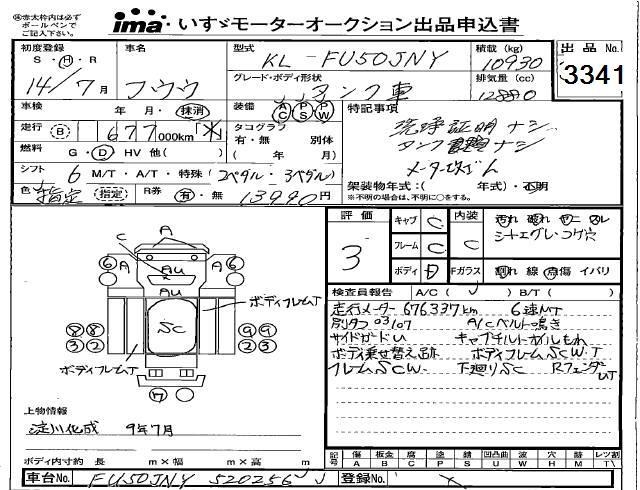 ㊟赤太枠内は必ず
ボールペンで
ご記入下さい。
ima いすゞモーターオークション出品申込書
初度登録 車名 型式 KL-FU50JNY 積載 (kg) 10930 出品 No.
S・H・R
14年/7月 フウウ グレード・ボディ形状 タンク車 排気量 (cc) 3341
車検 年・月・抹消 装備 AC PS PW 特記事項
洗浄証明ナシ
走行 (B) 677000km タコグラフ
有・無 別体
( 年 月) タンク ナシ
燃料 G・D HV 他( ) メーター
シフト 6 M/T・A/T・特殊(2ペダル・3ペダル) 架装物年式:( 年式)・不明
※不明の場合は、不明に○をする。
色 指定 (指定) R券 有・無 13990円
評価 3
キャブ C 内装 C
フレーム C
ボディ D Fガラス
汚れ 破れ ヤニ スレ
シートエグレ・コゲ穴
割れ 線 点傷 イバリ
検査員報告 A/C( ) B/T( )
走行メーター 676337km 6速MT
別タコ 03/07 A/Cベルト鳴き
サイドガードU キャブチルトオイルもれ
ボディ乗せ替え跡 ボディフレームSCW.T
フレームSCW. 下廻りSC Rフェンダ
A
C
6 A AU A 6
AU
ボディフレームT
SC
8 8 9 9
3 2 2 3
ボディフレームT
ワ
上物情報
淀川化成 9年7月
ボディ内寸約 長 m×幅 m×高 m
記号 傷 板金 腐 塗 錆 凹凸曲 波 穴 外 レツ割
A B C P S U W H M T
車台No. FU50JNY 520256 J 登録No.